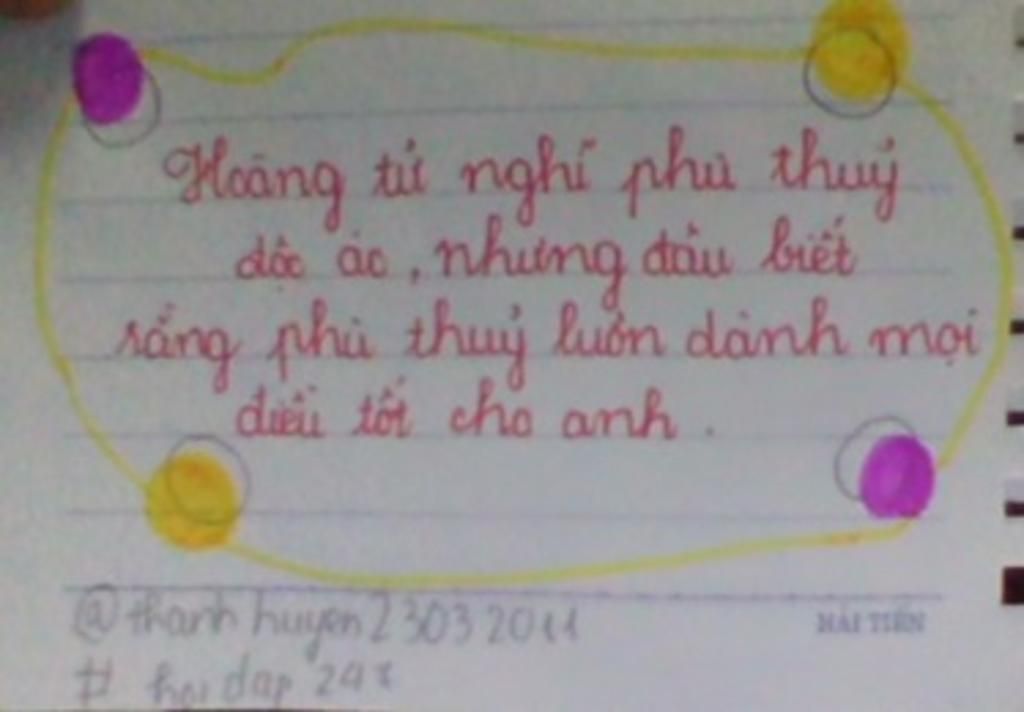 Hoàng tử nghĩ phù thuỷ
độc ác, nhưng đâu biết
rằng phù thuỷ luôn dành mọi
điều tốt cho anh.
@thanhhuyen23032011
HẢI TIẾN
# hoi dap 247